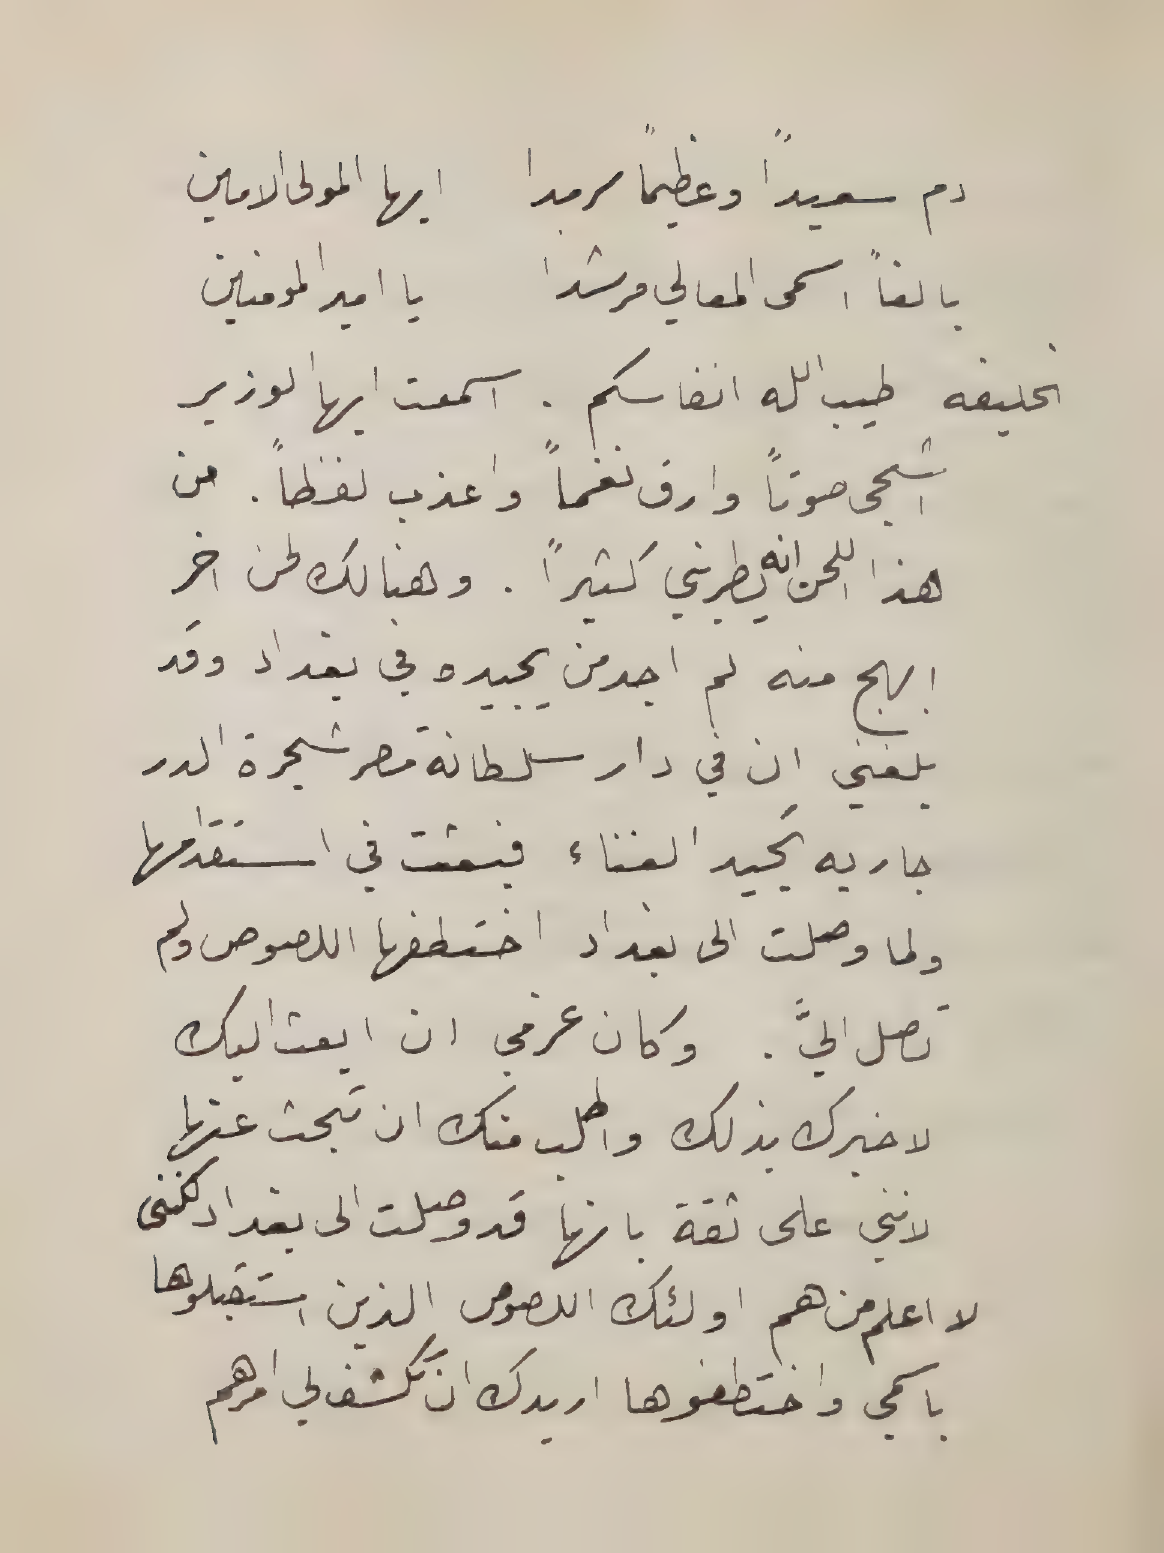 دم سعيداً وعظيماً سرمدا ايها المولى الامين
بالغاً اسمى المعالي مرشدا يا امير المومنين
الخليفه طيب الله انفاسكم . اسمعت ايها الوزير
اشجى صوتاً وارق نغماً واعذب لفظاً . من
هذا اللحن انه يطربني كثيراً . وهنالك لحن اخر
ابهج منه لم اجد من يجيده في بغداد وقد
بلغني ان في دار سلطانة مصر شجرة الدر
جاريه تجيد الغناء فبعثت في استقدامها
ولما وصلت الى بغداد اختطفها اللصوص ولم
تصل اليَّ . وكان عزمي ان ابعث اليك
لاخبرك بذلك واطلب منك ان تبحث عنها
لانني على ثقة بانها قد وصلت الى بغداد لكنني
لا اعلم من هم اولئك اللصوص الذين استقبلوها
باسمي واختطفوها اريدك ان تكشف لي امرهم